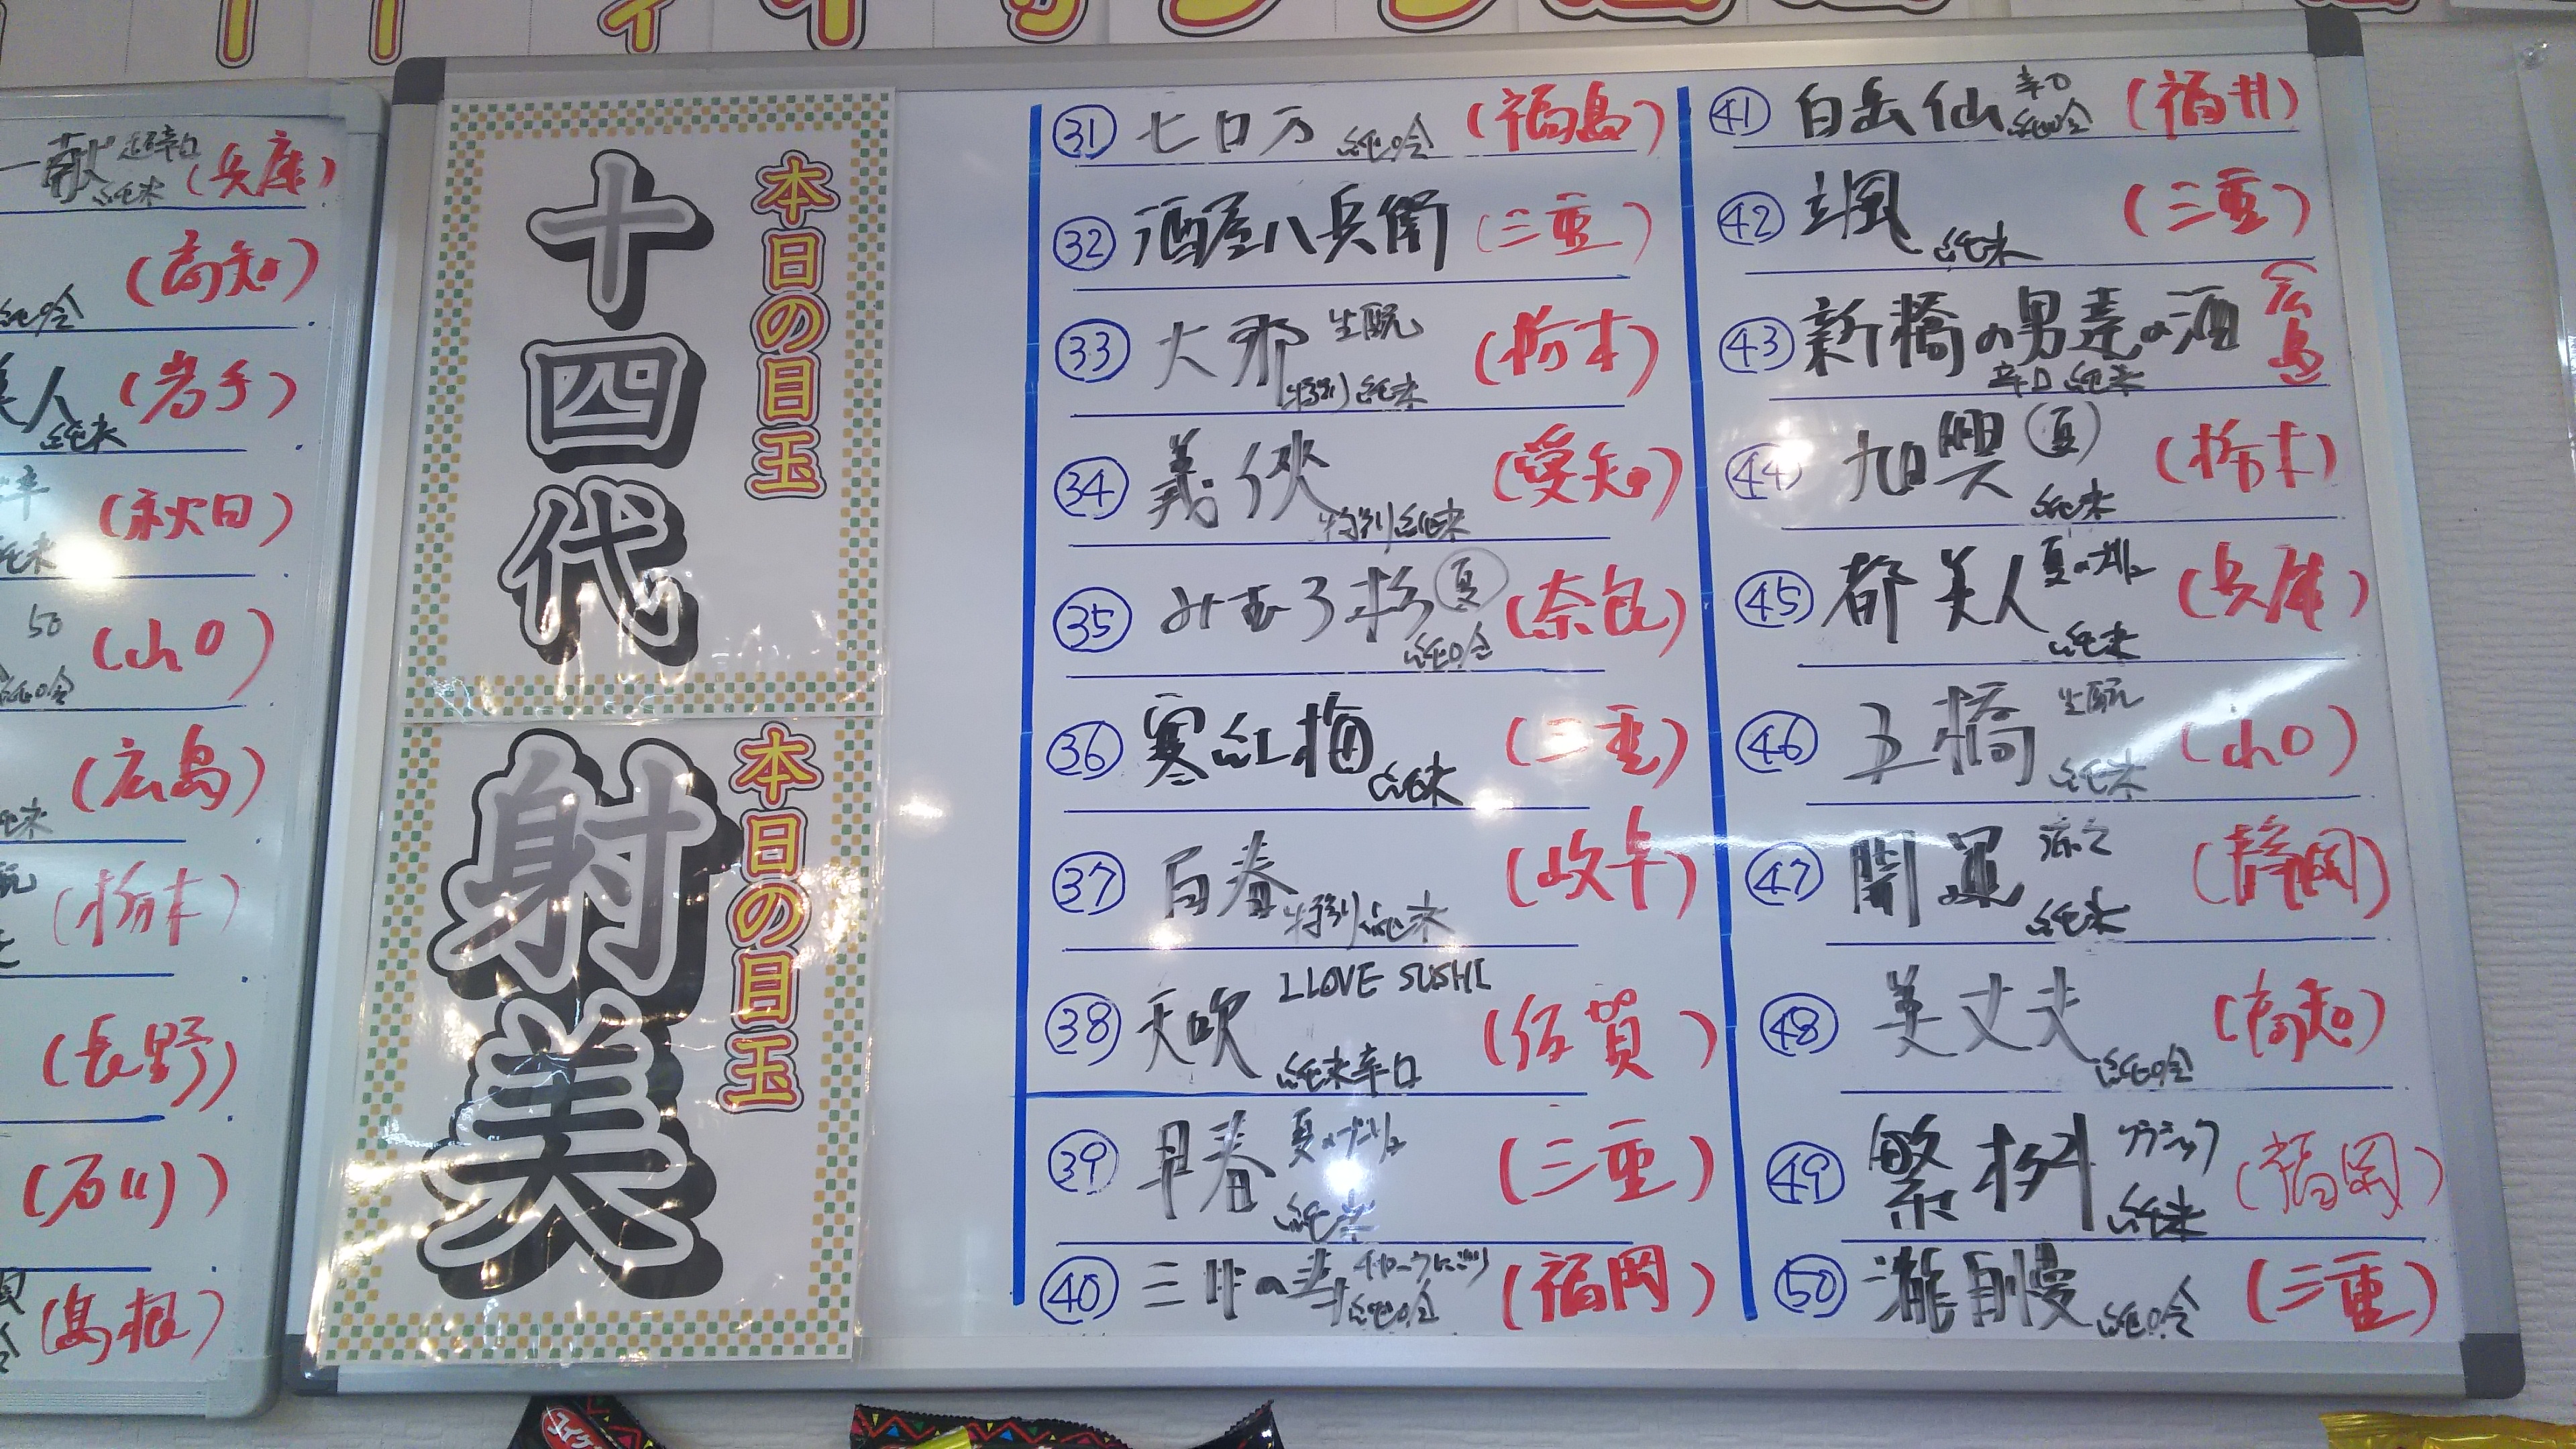 一献 超辛口 純米 (兵庫)
(高知)
純吟
美人 純米 (岩手)
(秋田)
純米
50 (山口)
純吟
(広島)
純米
(栃木)
(長野)
(石川)
(島根)
本日の目玉
十四代
本日の目玉
射美
㉛ 七ロ万 純吟 (福島)
㉜ 酒屋八兵衛 (三重)
㉝ 大那 生酛 特別純米 (栃木)
㉞ 義侠 特別純米 (愛知)
㉟ みむろ杉 夏 純吟 (奈良)
㊱ 寒紅梅 純米 (三重)
㊲ 百春 特別純米 (岐阜)
㊳ 天吹 I LOVE SUSHI 純米辛口 (佐賀)
㊴ 早春 夏の 純米 (三重)
㊵ 三井の寿 純吟 (福岡)
㊶ 白岳仙 辛口 純吟 (福井)
㊷ 颯 純米 (三重)
㊸ 新橋の男達の酒 辛口 純米 (広島)
㊹ 旭興 (夏) 純米 (栃木)
㊺ 都美人 夏の 純米 (兵庫)
㊻ 五橋 生酛 純米 (山口)
㊼ 開運 涼々 純米 (静岡)
㊽ 美丈夫 純吟 (高知)
㊾ 繁桝 クラシック 純米 (福岡)
㊿ 瀧自慢 純吟 (三重)